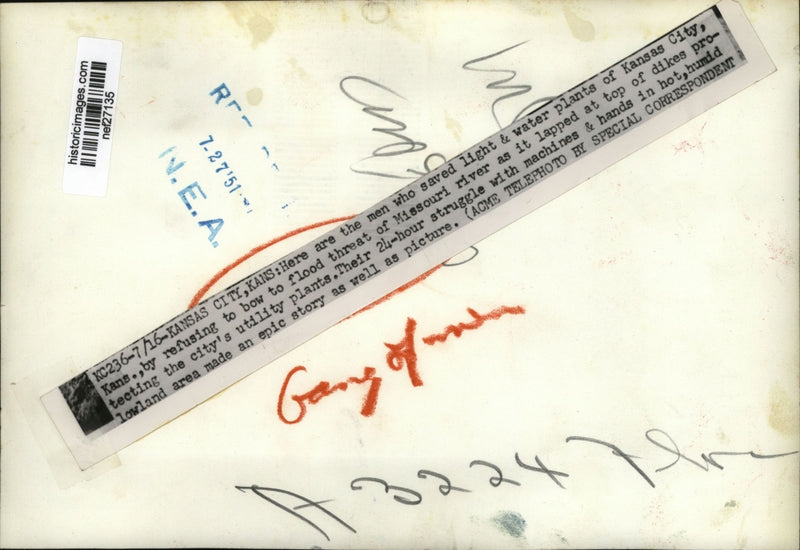 historicimages.com
nef27135
7.27'51
N.E.A.
KC236-7/16-KANSAS CITY,KANS:Here are the men who saved light & water plants of Kansas City,
Kans.,by refusing to bow to flood threat of Missouri river as it lapped at top of dikes pro-
tecting the city's utility plants.Their 24-hour struggle with machines & hands in hot,humid
lowland area made an epic story as well as picture. (ACME TELEPHOTO BY SPECIAL CORRESPONDENT
Gang of
A 3224